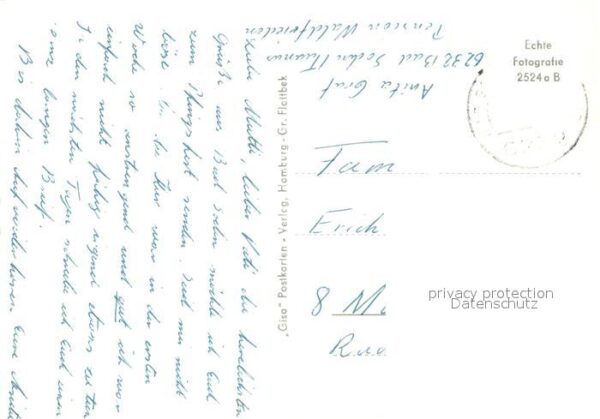 Anita Graf
6232 Bad Soden / Taunus
Pension Waldfrieden
Liebe Mutti, lieber Vati die herzlichsten
Grüße aus Bad Soden möchte ich Euch
zum Pfingstfest senden. Seid mir nicht
böse die Kur war in der ersten
Woche so anstrengend und ich war
einfach nicht fähig irgend etwas zu tun
In den nächsten Tagen schreibe ich Euch einen
ganz langen Brief.
Bis dahin Auf wiederhören. Eure Anita
"Gisa" Postkarten - Verlag, Hamburg - Gr. Flottbek
Echte
Fotografie
2524 a B
Fam
Erich
8 Mü
privacy protection
Datenschutz